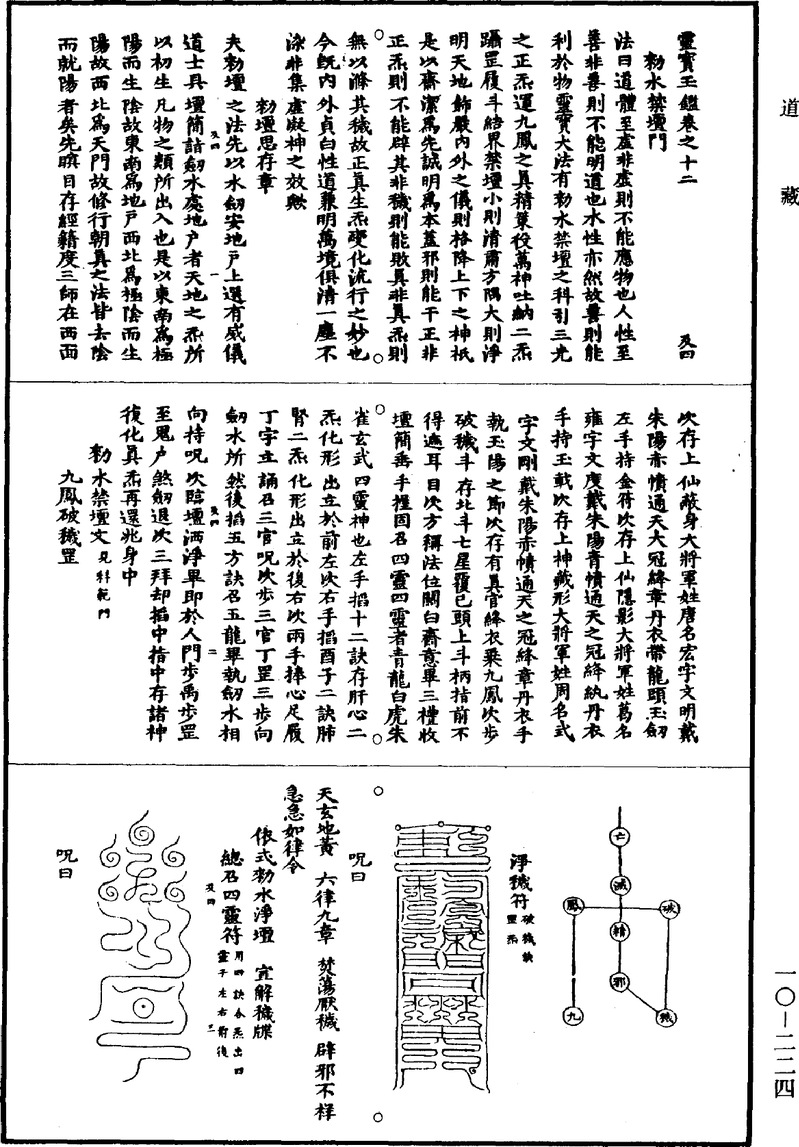 道藏
一〇—二二四
靈寶玉鑑卷之十二　及四
勑水禁壇門
法曰道體至虛非虛則不能應物也人性至
善非善則不能明道也水性亦然故善則能
利於物靈寶大法有勑水禁壇之科引三光
之正炁運九鳳之真精葉役萬神吐納二炁
躡罡履斗結界禁壇小則清肅方隅大則淨
明天地飾嚴內外之儀則格降上下之神祇
是以齋潔為先誠明為本蓋邪則能干正非
正炁則不能辟其非穢則能敗真非真炁則
無以滌其穢故正真生炁變化流行之妙也
今既內外貞白性道兼明萬境俱清一塵不
染非集虛凝神之效歟
勑壇思存章
夫勑壇之法先以水劒安地戶上還有威儀
道士具壇簡詣劒水處地戶者天地之炁所
以初生凡物之類所出入也是以東南為極
陽而生陰故東南為地戶西北為極陰而生
陽故西北為天門故修行朝真之法皆去陰
而就陽者矣先瞑目存經籍度三師在西面
次存上仙蔽身大將軍姓唐名宏字文明戴
朱陽赤幘通天大冠絳章丹衣帶龍頭玉劒
左手持金符次存上仙隱影大將軍姓葛名
雍字文度戴朱陽青幘通天之冠絳紈丹衣
手持玉戟次存上神藏形大將軍姓周名式
字文剛戴朱陽赤幘通天之冠絳章丹衣手
執玉陽之節次存有真官絳衣乘九鳳次步
破穢斗存北斗七星覆已頭上斗柄指前不
得遮耳目次方稱法位關白齋意畢三禮收
壇簡垂手握固召四靈四靈者青龍白虎朱
雀玄武四靈神也左手搯十二訣存肝心二
炁化形出立於前左次右手搯酉子二訣肺
腎二炁化形出立於後右次兩手捧心足履
丁字立誦召三官呪次步三官丁罡三步向
劒水所然後搯五方訣召五龍畢執劒水相
向持呪次臨壇洒淨畢即於人門步禹步罡
至鬼戶煞劒退次三拜却搯中指中存諸神
復化真炁再還兆身中
勑水禁壇文見科範門
九鳳破穢罡
亡
滅
精
邪
穢
破
鳳
九
淨穢符破穢訣靈炁
呪曰
天玄地黃　六律九章　焚蕩厭穢　辟邪不祥
急急如律令
依式勑水淨壇　宣解穢牒
總召四靈符用四訣令炁出四靈于左右前後
呪曰